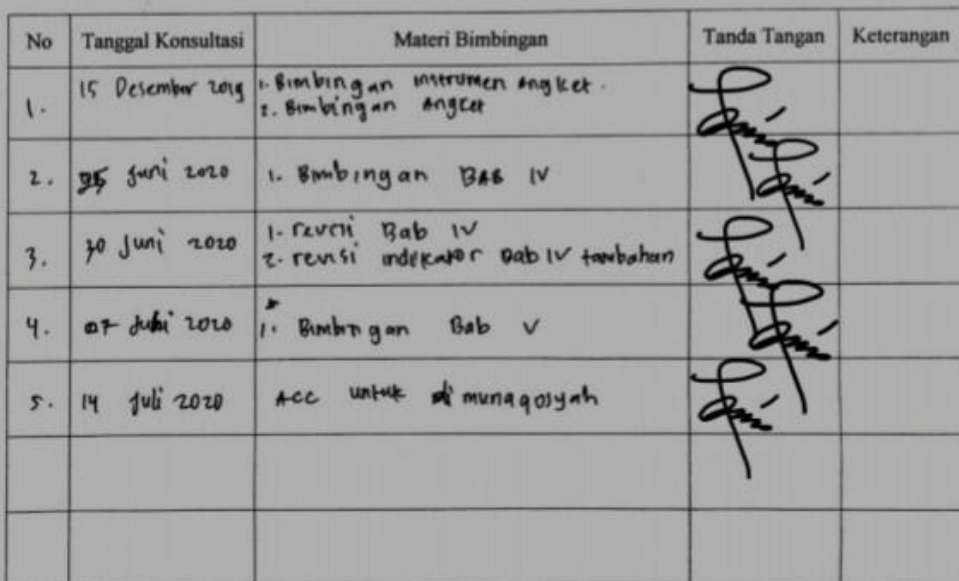 No Tanggal Konsultasi Materi Bimbingan Tanda Tangan Keterangan
1. 15 Desember 2019 1. Bimbingan instrumen angket.
2. Bimbingan angket
2. 05 Juni 2020 1. Bimbingan BAB IV
3. 30 Juni 2020 1. revisi Bab IV
2. revisi indikator Bab IV tambahan
4. 07 Juli 2020 1. Bimbingan Bab V
5. 14 Juli 2020 ACC untuk di munaqosyah